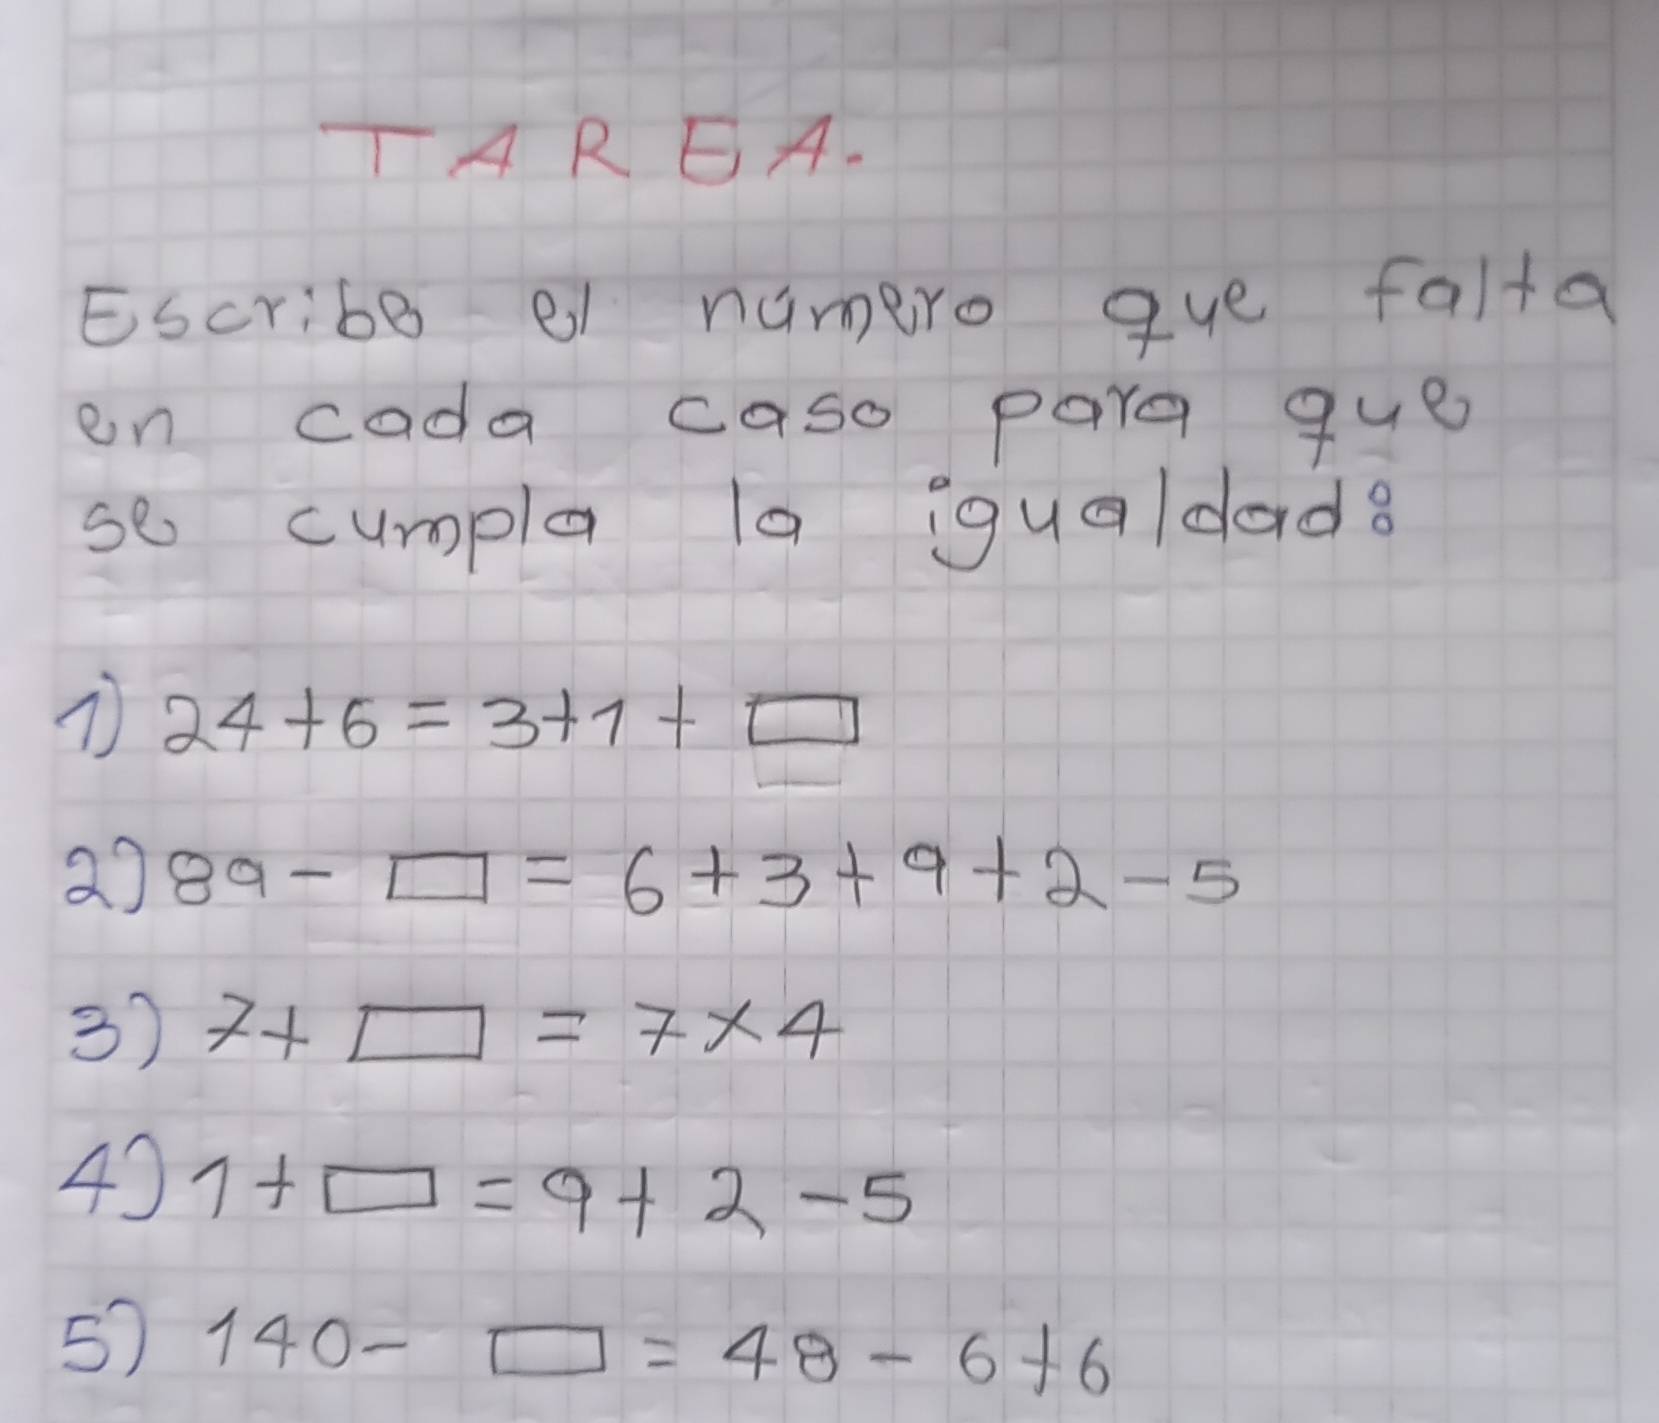 TAREA.
Escribe el número que falta
en cada caso para que
se cumpla la igualdad:
1) 24+6=3+1+□
2) 89-□=6+3+9+2-5
3) 7+□=7×4
4) 1+□=9+2-5
5) 140-□=48-6+6